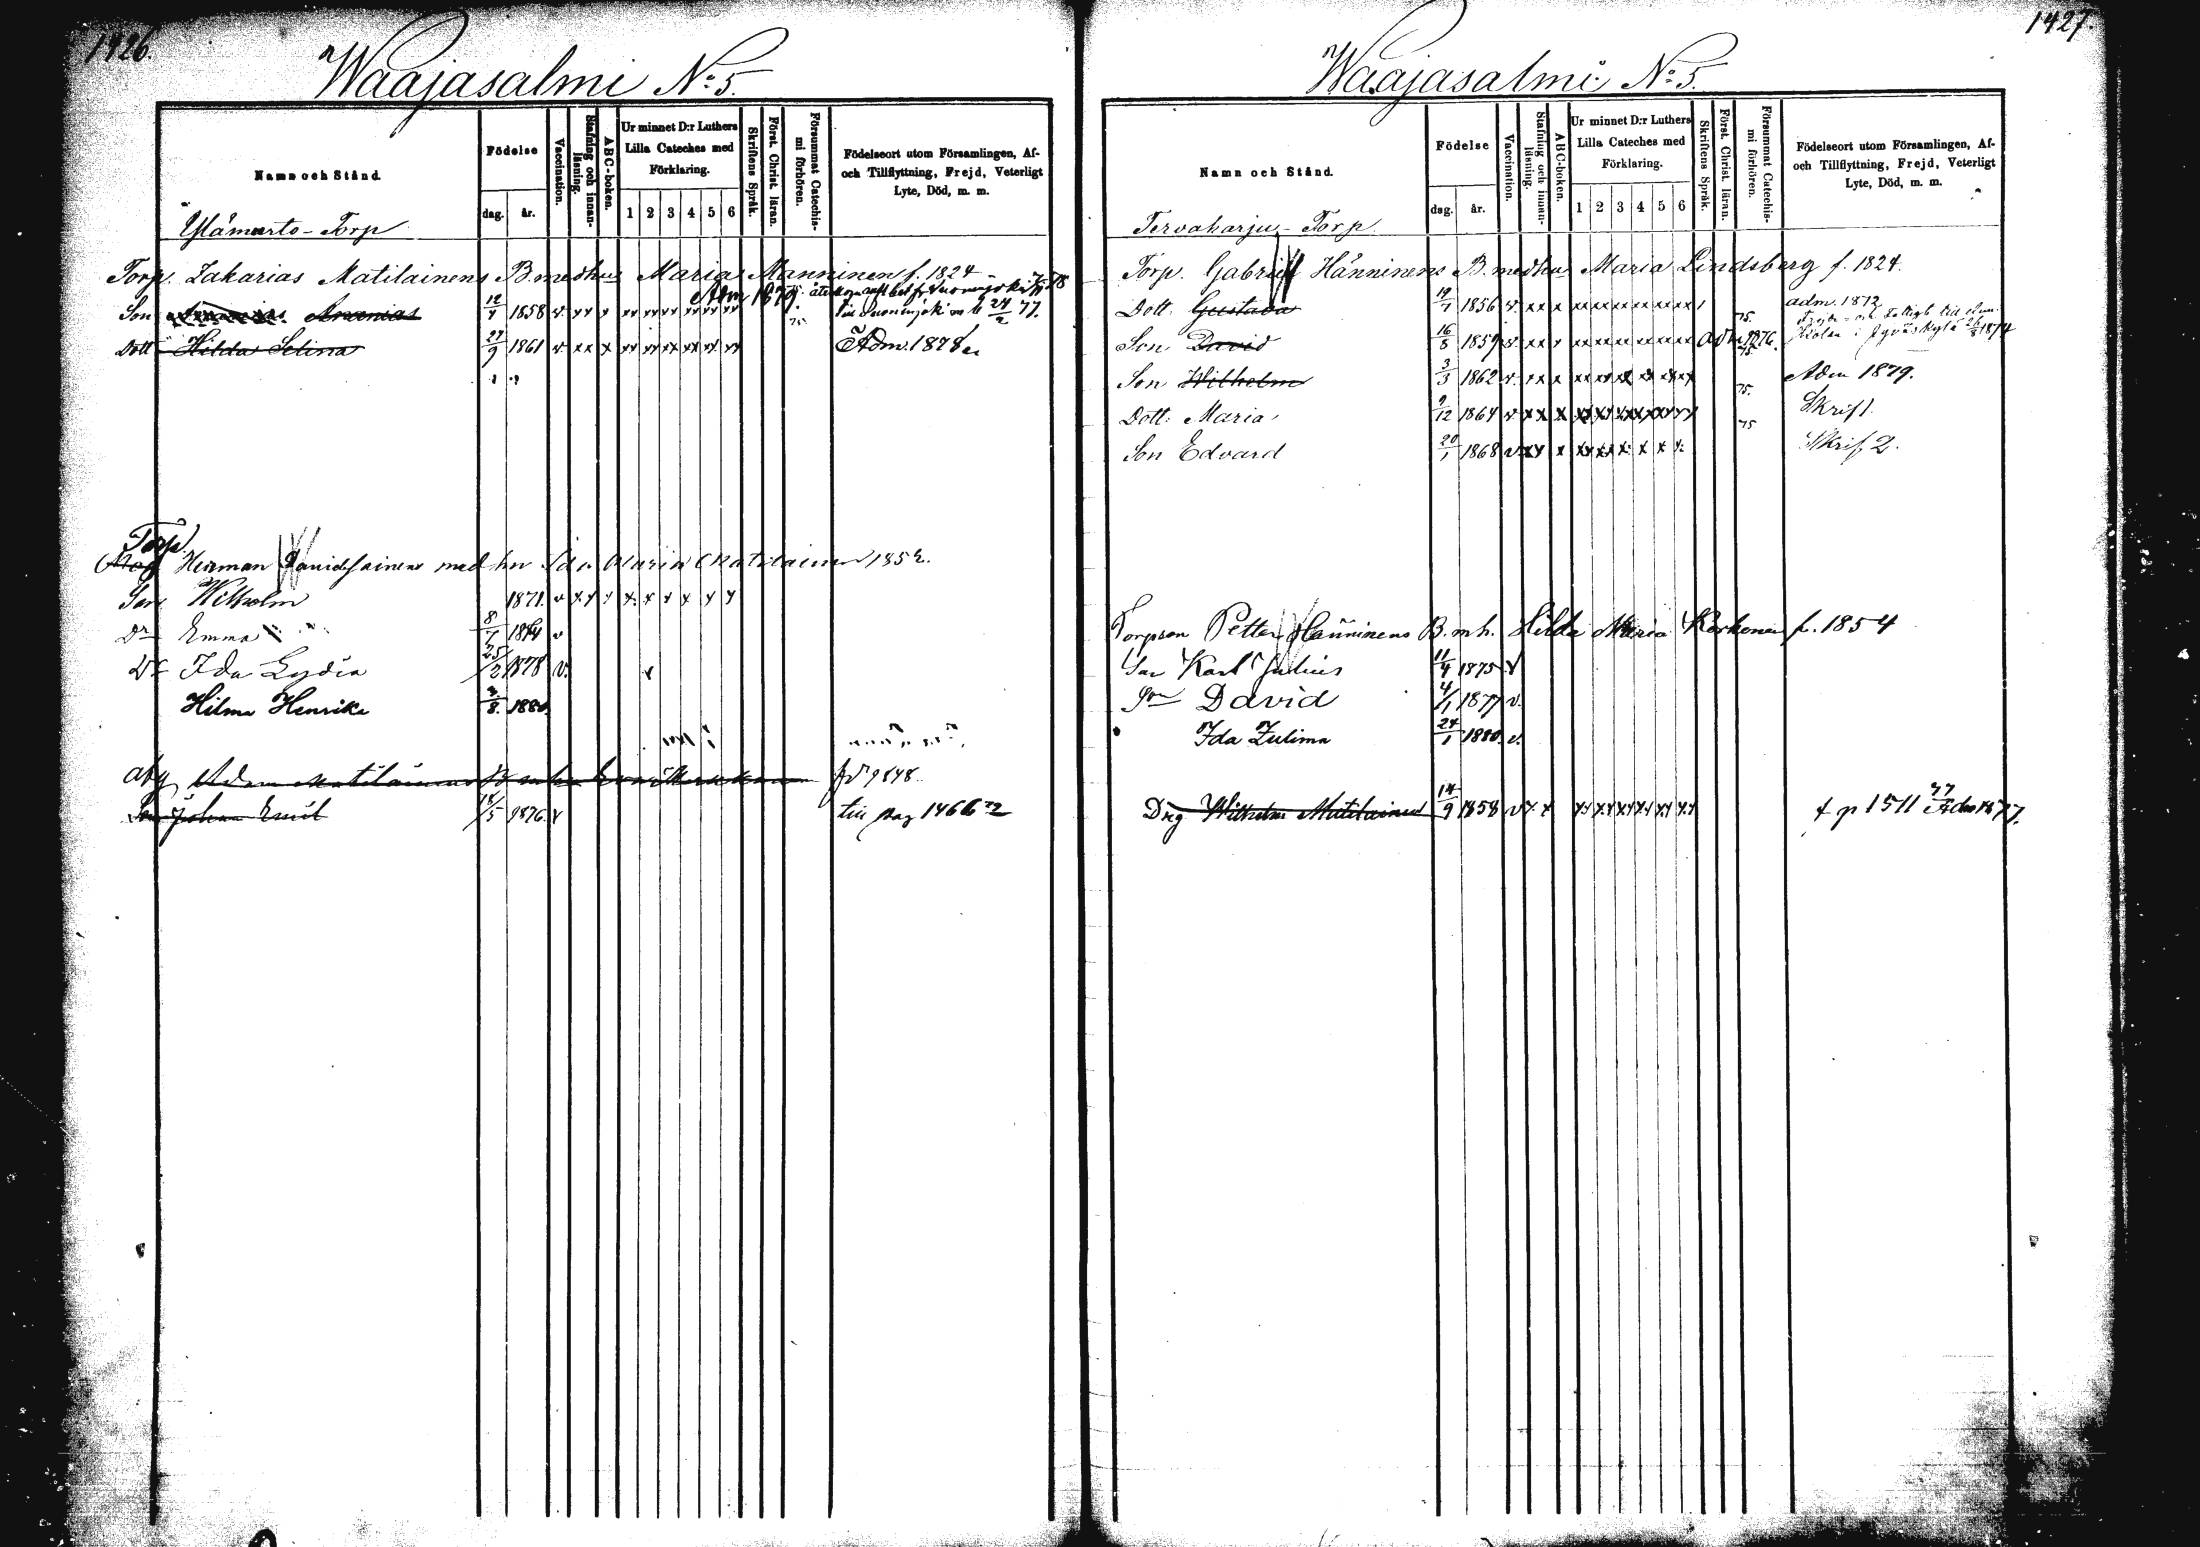 1426.
Waajasalmi No 5.
Namn och Stånd.
Födelse
dag.
år.
Vaccination.
Stafning och innanläsning.
ABC-boken.
Ur minnet D:r Luthers Lilla Cateches med Förklaring.
1 2 3 4 5 6
Skriftens Språk.
Först. Christ. läran.
Försummat Catechismi förhören.
Födelseort utom Församlingen, Af- och Tillflyttning, Frejd, Veterligt Lyte, Död, m. m.
Torp
Torp. Zakarias Matilainens B. med hus Maria Manninen f. 1824
Son Ananias 12/7 1858 v. xx x xx xx xx xx xx xx Adm 1879. 75. till Suonenjoki 24/2 77.
Dott Hilda Selina 27/9 1861 v. xx x xx xx xx xx xx xx Adm. 1878
Torp.
Herman Davidsainens med hu Ida Maria Matilainen 1852.
Son Wilhelm 1871. v x x x x x x x x x
Dr Emma 8/7 1874 v
Dr Ida Lydia 25/2 1878 v.
Hilma Henrika 3/8. 1880.
Adam Matilainens
Son Johan Emil 18/5 1876 v till pag 1466
1427.
Waajasalmi No 5.
Namn och Stånd.
Födelse
dag.
år.
Vaccination.
Stafning och innanläsning.
ABC-boken.
Ur minnet D:r Luthers Lilla Cateches med Förklaring.
1 2 3 4 5 6
Skriftens Språk.
Först. Christ. läran.
Försummat Catechismi förhören.
Födelseort utom Församlingen, Af- och Tillflyttning, Frejd, Veterligt Lyte, Död, m. m.
Tervaharju - Torp
Torp. Gabriel Hänninens B. med hus Maria Lindsberg f. 1824.
Dott. Gustava 19/7 1856 v. xx x xx xx xx xx xx xx 75. adm. 1872
Son David 16/8 1859 v. xx x xx xx xx xx xx xx adm 1876. 75 i Jyväskylä 1874
Son Wilhelm 3/3 1862 v. xx x xx xx xx xx xx xx 75. Adm 1879.
Dott. Maria 9/12 1864 v. xx x xx xx xx xx xx xx 75 Skrif 1.
Son Edvard 20/1 1868 v. xx x xx xx x x x x Skrif 2.
Torpson Petter Hänninens B. m h. Hilda Maria Korhonen f. 1854
Son Karl Julius 11/4 1875 v
Son David 4/1 1877 v.
Ida Zulima 24/1 1880. v.
Drg Wilhelm Matilainen 14/9 1858 v x x xx xx xx xx xx xx p 1511 77 Adm 1877.